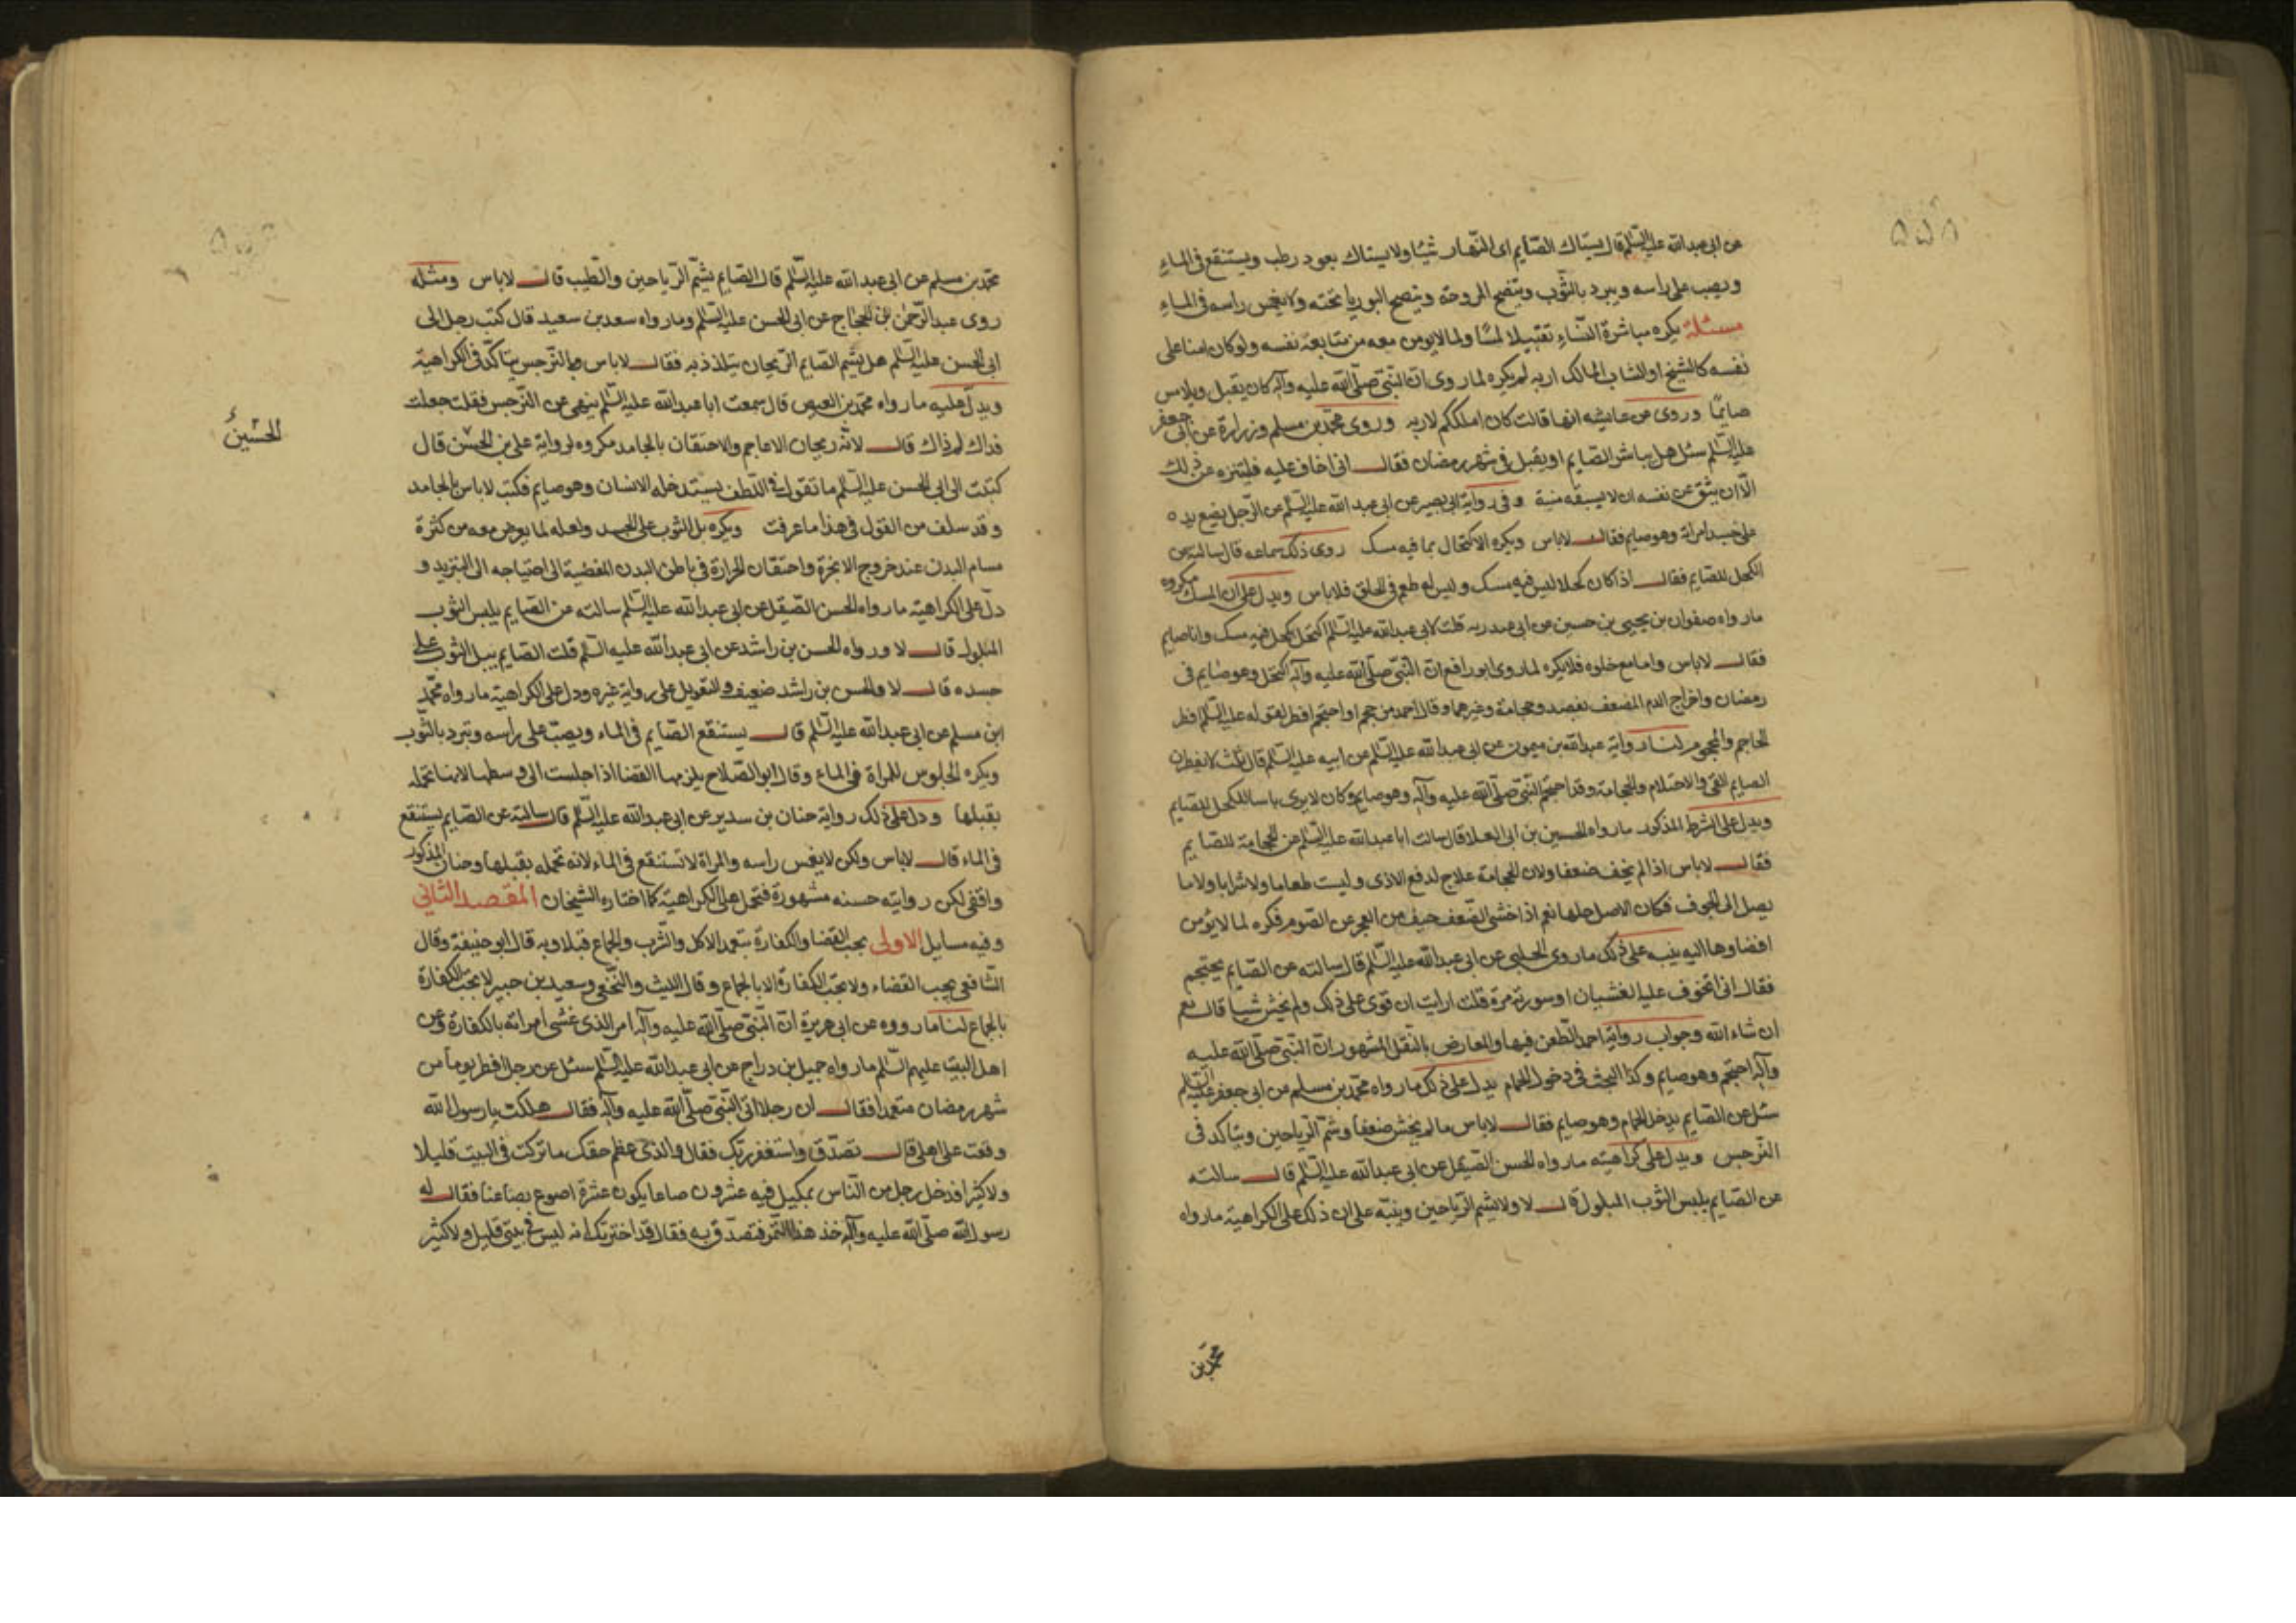 عن ابى عبد الله عليه السلم قال يستاك الصّايم اى النّهار شيئا ولا يستاك بعود رطب ويستنقع فى الماء
ويصب على راسه ويبرد بالثّوب وينضح المروحة وينضح البوريا تحته ولا يغمس راسه فى الماء
مسئلة يكره مباشرة النّساء تقبيلا لمسًا ولما لا يومن معه من متابعة نفسه ولو كان امنا على
نفسه كالشيخ او الشاب المالك اربه لم يكره لما روى انّ النّبى صلّى الله عليه وآله كان يقبل ويلامس
صايمًا وروى عن عايشه انها قالت كان املككم لاربه وروى محمّد بن مسلم وزرارة عن ابى جعفر
عليه السّلم سئل هل يباشر الصّايم او يقبل فى شهر رمضان فقال انى اخاف عليه فليتنزه عن ذلك
الّا ان يثق من نفسه ان لا يسبقه منيه وفى رواية ابى بصير عن ابى عبد الله عليه السّلم عن الرّجل يضع يده
على جسد امراته وهو صايم فقال لاباس ويكره الاكتحال بما فيه مسك روى ذلك سماعه قال سالته عن
الكحل للصّايم فقال اذا كان كحلا ليس فيه مسك وليس له طعم فى الحلق فلاباس ويدل على ان المسك مكروه
ما رواه صفوان بن يحيى بن حسين بن ابى غندر به قلت لابى عبد الله عليه السّلم اكتحل بكحل فيه مسك وانا صايم
فقال لاباس واما مع خلوه فلا يكره لما روى ابو رافع انّ النّبى صلّى الله عليه وآله اكتحل وهو صايم فى
رمضان واخراج الدم المضعف بفصد وحجامة وغيرهما وقال احمد من حجم او احتجم افطر لقوله عليه السّلم افطر
الحاجم والمحجوم لنا رواية عبد الله بن ميمون عن ابى عبد الله عليه السّلم عن ابيه عليه السّلم قال ثلث لا يفطرن
الصايم القى والاحتلام والحجامة وقد احتجم النّبى صلّى الله عليه وآله وهو صايم وكان لا يرى باسا بالكحل للصّايم
ويدل على الشرط المذكور ما رواه الحسين بن ابى العلا قال سالت ابا عبد الله عليه السّلم عن الحجامة للصّايم
فقال لاباس اذا لم يخف ضعفا ولان الحجامة علاج لدفع الاذى وليست طعاما ولا شرابا ولا ما
يصل الى الجوف فكان الاصل حلها نعم اذا خشى الضّعف خيف من العجز عن الصّوم فكره لما لا يؤمن
افضاوها اليه ينبه على ذلك ما روى الحلبى عن ابى عبد الله عليه السّلم قال سالته عن الصّايم يحتجم
فقال انى اتخوف عليه الغشيان او سورته مرة قلت ارايت ان قوى على ذلك ولم يخش شيا قال نعم
ان شاء الله وجواب رواية احمد الطّعن فيها والمعارض بالنّقل المشهور انّ النّبى صلّى الله عليه
وآله احتجم وهو صايم وكذا البحث فى دخول الحمام يدل على ذلك ما رواه محمّد بن مسلم عن ابى جعفر عليه السّلم
سئل عن الصّايم يدخل الحمام وهو صايم فقال لاباس ما لم يخش ضعفاً وشمّ الرّياحين ويتاكد فى
النّرجس ويدل على كراهيته ما رواه الحسن الصّيقل عن ابى عبد الله عليه السّلم قال سالته
عن الصّايم يلبس الثّوب المبلول قال لا ولا يشم الرّياحين وينبّه على ان ذلك على الكراهية ما رواه
محمّد بن
محمّد بن مسلم عن ابى عبد الله عليه السّلم قال الصّايم يشمّ الرّياحين والطّيب قال لاباس ومثله
روى عبد الرّحمن بن الحجّاج عن ابى الحسن عليه السّلم وما رواه سعد بن سعيد قال كتب رجل الى
ابى الحسن عليه السّلم هل يشم الصّايم الرّيحان يتلذذ به فقال لاباس به والنّرجس يتاكّد فى الكراهية
ويدلّ عليه ما رواه محمّد بن العيص قال سمعت ابا عبد الله عليه السّلم ينهى عن النّرجس فقلت جعلت
فداك لم ذاك قال لانّه ريحان الاعاجم والاحتقان بالجامد مكروه لرواية على بن الحسن قال
الحسين
كتبت الى ابى الحسن عليه السّلم ما تقول فى اللّطف يستدخله الانسان وهو صايم فكتب لاباس بالجامد
وقد سلف من القول فى هذا ما عرفت ويكره بل الثوب على الجسد ولعله لما يعرض معه من كثرة
مسام البدن عند خروج الابخرة واحتقان الحرارة فى باطن البدن المفضية الى احتياجه الى التبريد و
دلّ على الكراهية ما رواه الحسن الصّيقل عن ابى عبد الله عليه السّلم سالته عن الصّايم يلبس الثّوب
المبلول قال لا ورواه الحسن بن راشد عن ابى عبد الله عليه السّلم قلت الصّايم يبل الثوب على
جسده قال لا والحسن بن راشد ضعيف والتعويل على رواية غيره ودل على الكراهية ما رواه محمّد
ابن مسلم عن ابى عبد الله عليه السّلم قال يستنقع الصّايم فى الماء ويصبّ على راسه ويتبرد بالثّوب
ويكره الجلوس للمراة فى الماء وقال ابو الصّلاح يلزمها القضا اذا جلست الى وسطها لانها تحمله
بقبلها ودل على ذلك رواية حنان بن سدير عن ابى عبد الله عليه السّلم قال سالته عن الصّايم يستنقع
فى الماء قال لاباس ولكن لا يغمس راسه والمراة لا تستنقع فى الماء لانه تحمله بقبلها وحنان المذكور
واقفى لكن روايته حسنه مشهورة فتحمل على الكراهية كما اختاره الشيخان المقصد الثانى
وفيه مسايل الاولى يجب القضا والكفارة بتعمد الاكل والشّرب والجماع قبلا وبه قال ابو حنيفة وقال
الشّافعى يجب القضاء ولا تجب الكفارة الا بالجماع وقال الليث والنّخعى وسعيد بن جبير لا تجب الكفارة
بالجماع لنا ما رووه عن ابى هريرة انّ النّبى صلّى الله عليه وآله امر الذى غشى امراته بالكفارة وعن
اهل البيت عليهم السّلم ما رواه جميل بن دراج عن ابى عبد الله عليه السّلم سئل عن رجل افطر يوماً من
شهر رمضان متعمدا فقال ان رجلا اتى النّبى صلّى الله عليه وآله فقال هلكت يا رسول الله
وقعت على اهلى قال تصدّق واستغفر ربّك فقال والّذى عظم حقك ما تركت فى البيت قليلا
ولا كثيرا فدخل رجل من النّاس بمكيل فيه عشرون صاعا يكون عشرة اصوع بصاعنا فقال له
رسول الله صلّى الله عليه وآله خذ هذا التّمر فتصدّق به فقال قد اخبرتك انه ليس فى بيتى قليل ولا كثير